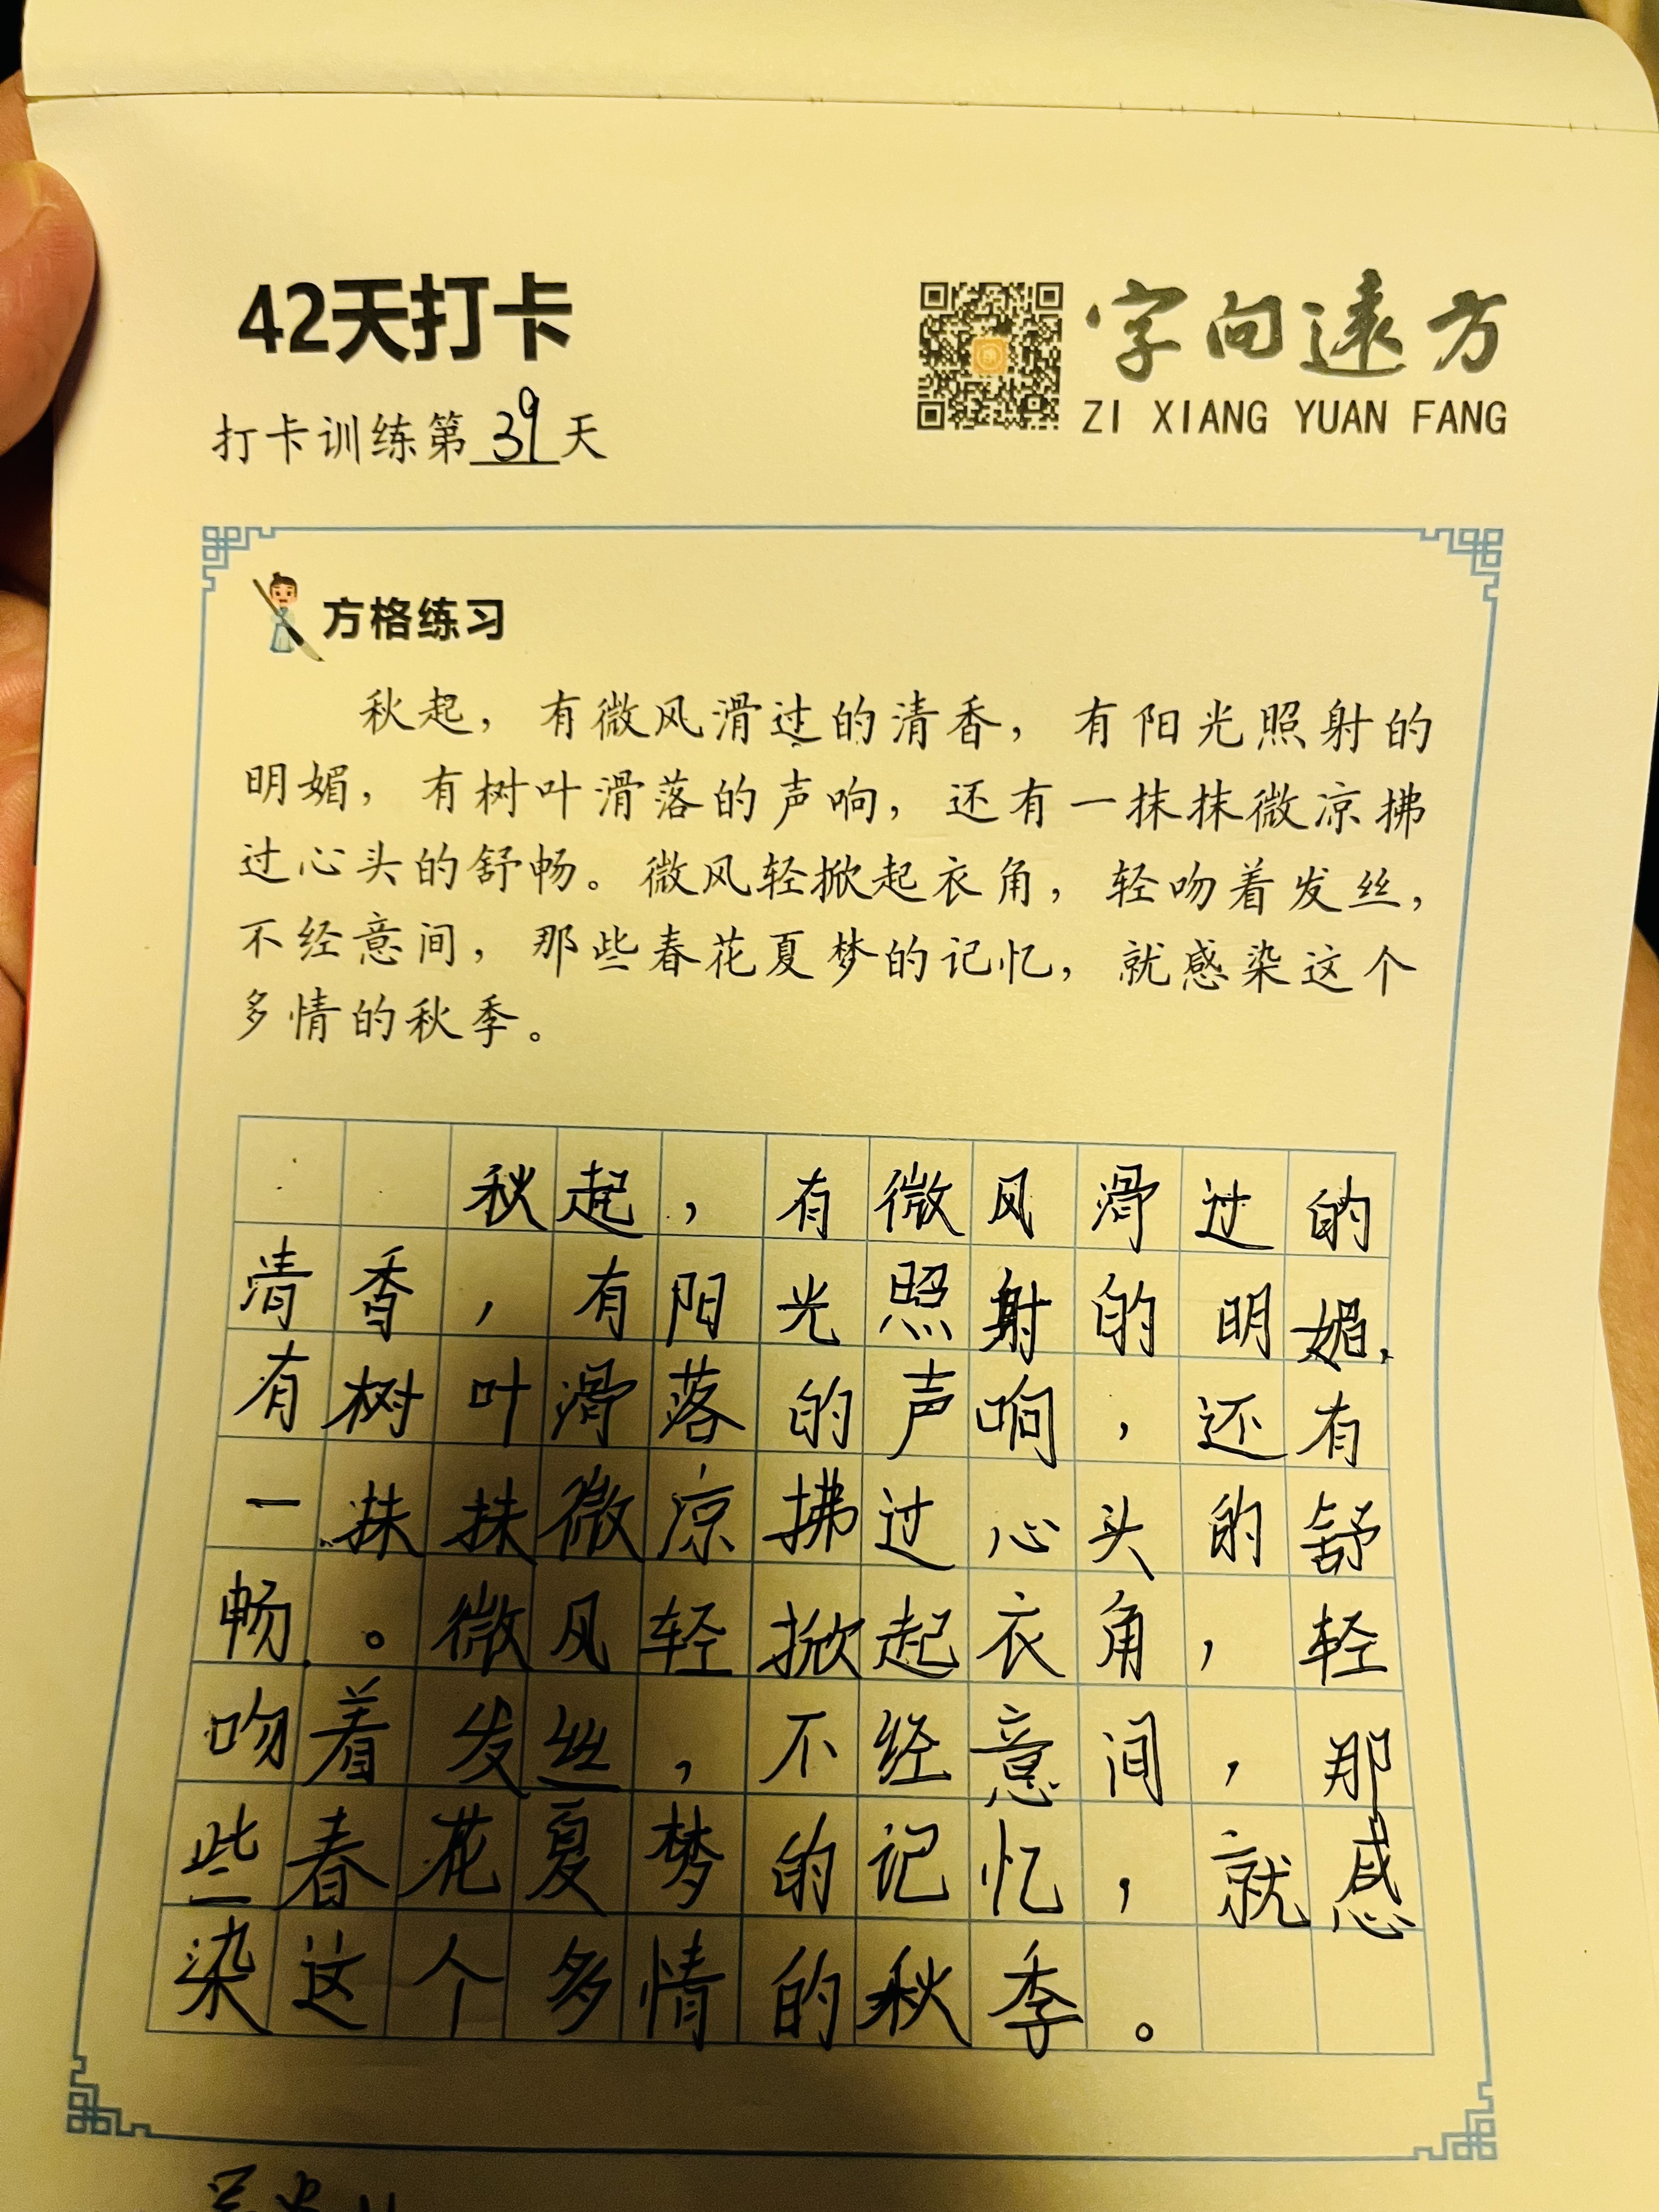 42天打卡
字向遠方
ZI XIANG YUAN FANG
打卡训练第39天
方格练习
秋起，有微风滑过的清香，有阳光照射的
明媚，有树叶滑落的声响，还有一抹抹微凉拂
过心头的舒畅。微风轻掀起衣角，轻吻着发丝，
不经意间，那些春花夏梦的记忆，就感染这个
多情的秋季。
秋起，有微风滑过的
清香，有阳光照射的明媚，
有树叶滑落的声响，还有
一抹抹微凉拂过心头的舒
畅。微风轻掀起衣角，轻
吻着发丝，不经意间，那
些春花夏梦的记忆，就感
染这个多情的秋季。